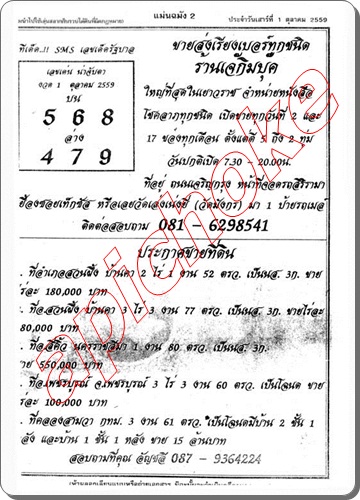 แม่นฉมัง 2
ประจำวันเสาร์ที่ 1 ตุลาคม 2559
ทีเด็ด..!! SMS เลขเด็ดรัฐบาล
เลขเด่น น่าจับตา
งวด 1 ตุลาคม 2559
บน
5 6 8
ล่าง
4 7 9
ขายส่งเรียงเบอร์ทุกชนิด
ร้านเจ๊กิมบุ๊ค
ใหญ่ที่สุดในเยาวราช จำหน่ายหนังสือ
โชคลาภทุกชนิด เปิดขายทุกวันที่ 2 และ
17 ของทุกเดือน ตั้งแต่ตี 5 ถึง 2 ทุ่ม
วันปกติเปิด 7.30 - 20.00น.
ที่อยู่ ถนนเจริญกรุง หน้าที่จอดรถสิริรามา
เยื้องซอยเท็กซัส หรือเลยวัดเล่งเน่ยยี่ (วัดมังกร) มา 1 ป้ายรถเมล์
ติดต่อสอบถาม 081 - 6298541
apichoke
ประกาศขายที่ดิน
. ที่อำเภอสวนผึ้ง บ้านคา 2 ไร่ 1 งาน 52 ตรว. เป็นนส. 3ก. ขาย
ไร่ละ 180,000 บาท
. ที่อ.สวนผึ้ง บ้านคา 3 ไร่ 3 งาน 77 ตรว. เป็นนส. 3ก. ขายไร่ละ
80,000 บาท
. ที่อ.สีคิ้ว นครราชสีมา 1 งาน 80 ตรว. เป็นนส. 3ก.
ขาย 550,000 บาท
. ที่อ.เพชรบูรณ์ จ.เพชรบูรณ์ 3 ไร่ 3 งาน 60 ตรว. เป็นโฉนด ขาย
ไร่ละ 100,000 บาท
. ที่คลองสามวา กทม. 3 งาน 61 ตรว. เป็นโฉนดมีบ้าน 2 ชั้น 1
หลัง และบ้าน 1 ชั้น 1 หลัง ขาย 15 ล้านบาท
สอบถามที่คุณ อัญชลี 087 - 9364224